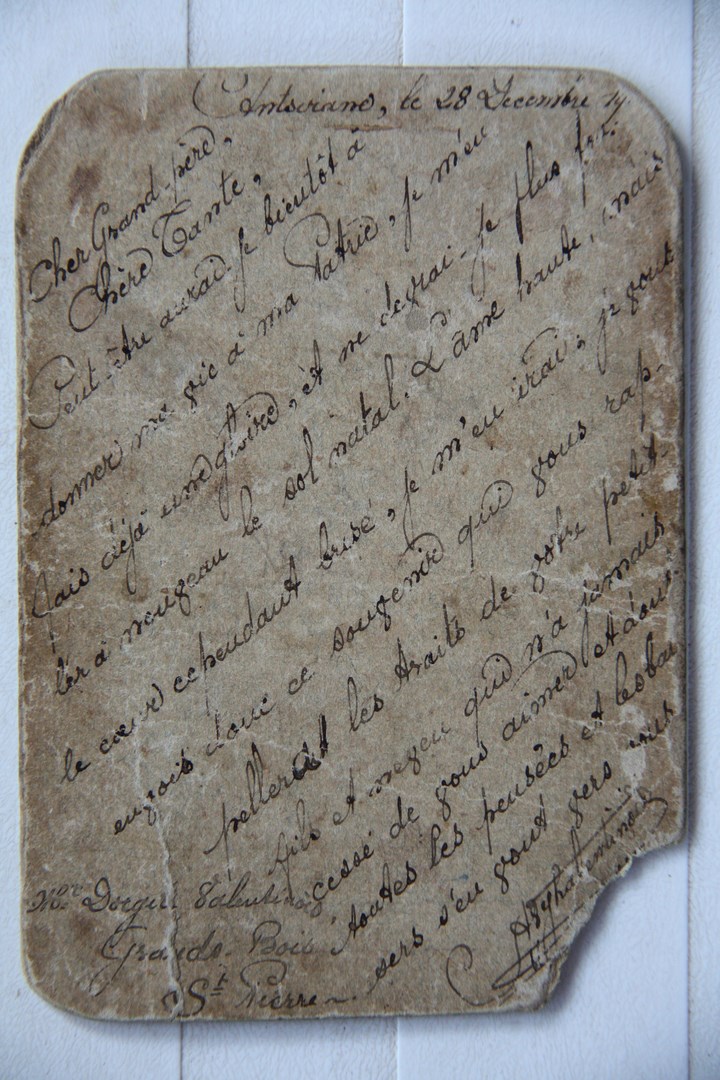 Antsirane, le 28 Decembre 19
Cher Grand-père,
Chère Tante,
Peut-être aurai-je bientôt à
donner ma vie à ma Patrie, je m'en
fais déjà une gloire, et ne devrai-je plus
ler à nouveau le sol natal. L'âme haute, mais
le cœur cependant brisé, je m'en irai; je vous
envois donc ce souvenir qui vous rap-
pellerait les traits de votre petit-
fils et neveu qui n'a jamais
cessé de vous aimer et dont
toutes les pensées et les bai
sers s'en vont vers vous
Dorquil Valentine
Grands-Bois
St Pierre